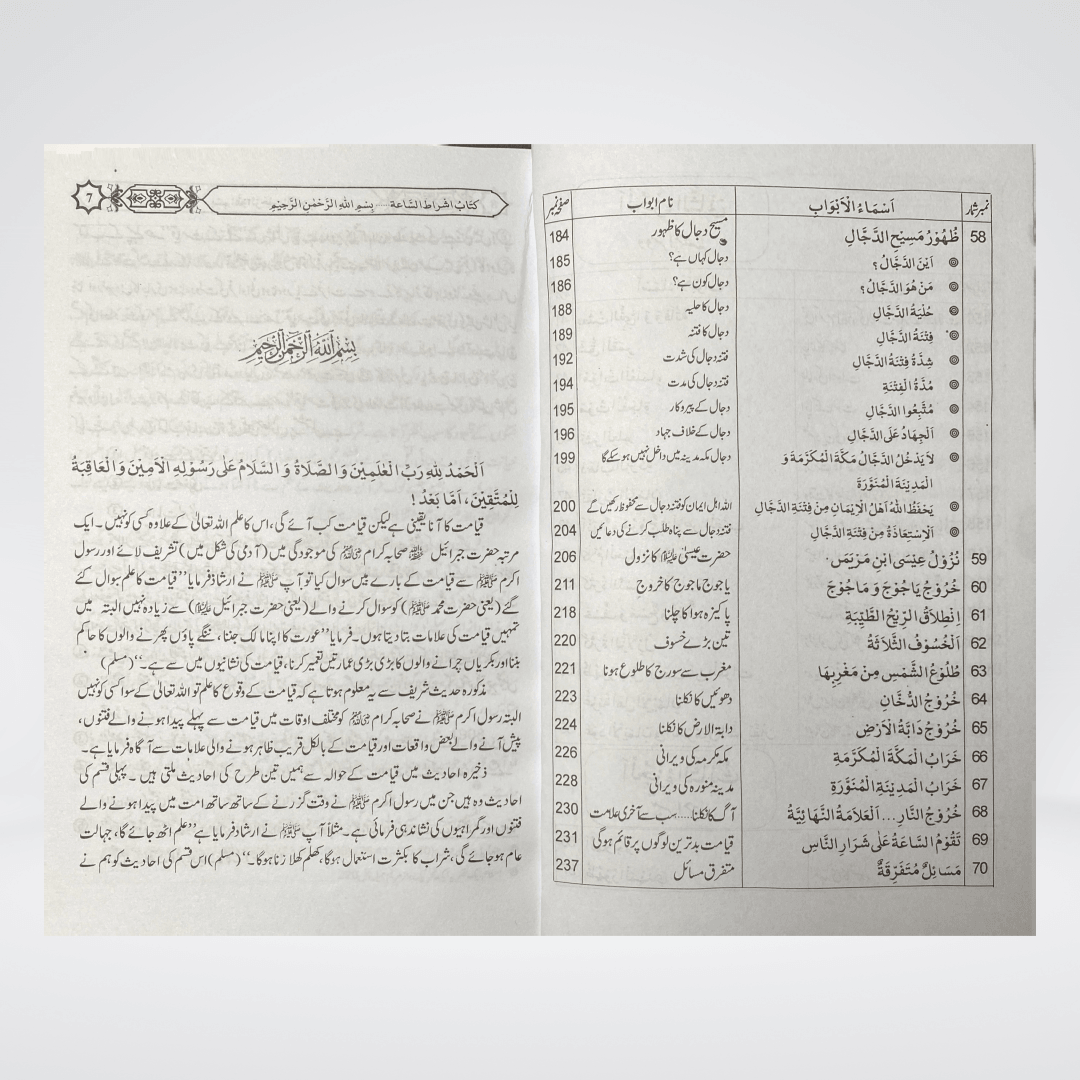 نمبر شمار اَسْمَاءُ الْاَبْوَابِ نام ابواب صفحہ نمبر
58 ظُهُوْرُ مَسِيْحِ الدَّجَّالِ مسیح دجال کا ظہور 184
◎ اَيْنَ الدَّجَّالُ؟ دجال کہاں ہے؟ 185
◎ مَنْ هُوَ الدَّجَّالُ؟ دجال کون ہے؟ 186
◎ حُلْيَةُ الدَّجَّالِ دجال کا حلیہ 188
◎ فِتْنَةُ الدَّجَّالِ دجال کا فتنہ 189
◎ شِدَّةُ فِتْنَةِ الدَّجَّالِ فتنہ دجال کی شدت 192
◎ مُدَّةُ الْفِتْنَةِ فتنہ دجال کی مدت 194
◎ مُتَّبِعُوا الدَّجَّالِ دجال کے پیروکار 195
◎ اَلْجِهَادُ عَلَى الدَّجَّالِ دجال کے خلاف جہاد 196
◎ لاَ يَدْخُلُ الدَّجَّالُ مَكَّةَ الْمُكَرَّمَةَ وَ دجال مکہ مدینہ میں داخل نہیں ہو سکے گا 199
الْمَدِيْنَةَ الْمُنَوَّرَةَ
◎ يَحْفَظُ اللّٰهُ اَهْلَ الْاِيْمَانِ مِنْ فِتْنَةِ الدَّجَّالِ اللہ اہل ایمان کو فتنہ دجال سے محفوظ رکھیں گے 200
◎ اَلْاِسْتِعَاذَةُ مِنْ فِتْنَةِ الدَّجَّالِ فتنہ دجال سے پناہ طلب کرنے کی دعائیں 204
59 نُزُوْلُ عِيْسَى ابْنِ مَرْيَمَ حضرت عیسیٰ علیہ السلام کا نزول 206
60 خُرُوْجُ يَاجُوْجَ وَ مَاجُوْجَ یاجوج ماجوج کا خروج 211
61 اِنْطِلاَقُ الرِّيْحِ الطَّيِّبَةِ پاکیزہ ہوا کا چلنا 218
62 اَلْخُسُوْفُ الثَّلاَثَةُ تین بڑے خسوف 220
63 طُلُوْعُ الشَّمْسِ مِنْ مَغْرِبِهَا مغرب سے سورج کا طلوع ہونا 221
64 خُرُوْجُ الدُّخَانِ دھوئیں کا نکلنا 223
65 خُرُوْجُ دَابَّةُ الْاَرْضِ دابۃ الارض کا نکلنا 224
66 خَرَابُ الْمَكَّةَ الْمُكَرَّمَةِ مکہ مکرمہ کی ویرانی 226
67 خَرَابُ الْمَدِيْنَةِ الْمُنَوَّرَةِ مدینہ منورہ کی ویرانی 228
68 خُرُوْجُ النَّارِ... اَلْعَلاَمَةُ النِّهَائِيَّةُ آگ کا نکلنا.....سب سے آخری علامت 230
69 تَقُوْمُ السَّاعَةُ عَلٰى شِرَارِ النَّاسِ قیامت بدترین لوگوں پر قائم ہوگی 231
70 مَسَائِلٌ مُتَفَرِّقَةٌ متفرق مسائل 237
کتاب اشراط الساعة..... بِسْمِ اللّٰهِ الرَّحْمٰنِ الرَّحِيْمِ 7
بِسْمِ اللّٰهِ الرَّحْمٰنِ الرَّحِيْمِ
اَلْحَمْدُ لِلّٰهِ رَبِّ الْعٰلَمِيْنَ وَ الصَّلَاةُ وَ السَّلَامُ عَلٰى رَسُوْلِهِ الْاَمِيْنِ وَ الْعَاقِبَةُ
لِلْمُتَّقِيْنَ، اَمَّا بَعْدُ!
قیامت کا آنا یقینی ہے لیکن قیامت کب آئے گی، اس کا علم اللہ تعالیٰ کے علاوہ کسی کو نہیں۔ ایک
مرتبہ حضرت جبرائیل علیہ السلام صحابہ کرام رضی اللہ عنہم کی موجودگی میں (آدمی کی شکل میں) تشریف لائے اور رسول
اکرم ﷺ سے قیامت کے بارے میں سوال کیا تو آپ ﷺ نے ارشاد فرمایا ’’قیامت کا علم سوال کئے
گئے (یعنی حضرت محمد ﷺ) کو سوال کرنے والے (یعنی حضرت جبرائیل علیہ السلام) سے زیادہ نہیں البتہ میں
تمہیں قیامت کی علامات بتا دیتا ہوں۔ فرمایا ’’عورت کا اپنا مالک جننا، ننگے پاؤں پھرنے والوں کا حاکم
بننا اور بکریاں چرانے والوں کا بڑی بڑی عمارتیں تعمیر کرنا، قیامت کی نشانیوں میں سے ہے۔‘‘ (مسلم)
مذکورہ حدیث شریف سے یہ معلوم ہوتا ہے کہ قیامت کے وقوع کا علم تو اللہ تعالیٰ کے سوا کسی کو نہیں
البتہ رسول اکرم ﷺ نے صحابہ کرام رضی اللہ عنہم کو مختلف اوقات میں قیامت سے پہلے پیدا ہونے والے فتنوں،
پیش آنے والے بعض واقعات اور قیامت کے بالکل قریب ظاہر ہونے والی علامات سے آگاہ فرمایا ہے۔
ذخیرہ احادیث میں قیامت کے حوالہ سے ہمیں تین طرح کی احادیث ملتی ہیں۔ پہلی قسم کی
احادیث وہ ہیں جن میں رسول اکرم ﷺ نے وقت گزرنے کے ساتھ ساتھ امت میں پیدا ہونے والے
فتنوں اور گمراہیوں کی نشاندہی فرمائی ہے۔ مثلاً آپ ﷺ نے ارشاد فرمایا ہے ’’علم اٹھ جائے گا، جہالت
عام ہو جائے گی، شراب کا بکثرت استعمال ہوگا، کھلم کھلا زنا ہوگا۔‘‘ (مسلم) اس قسم کی احادیث کو ہم نے